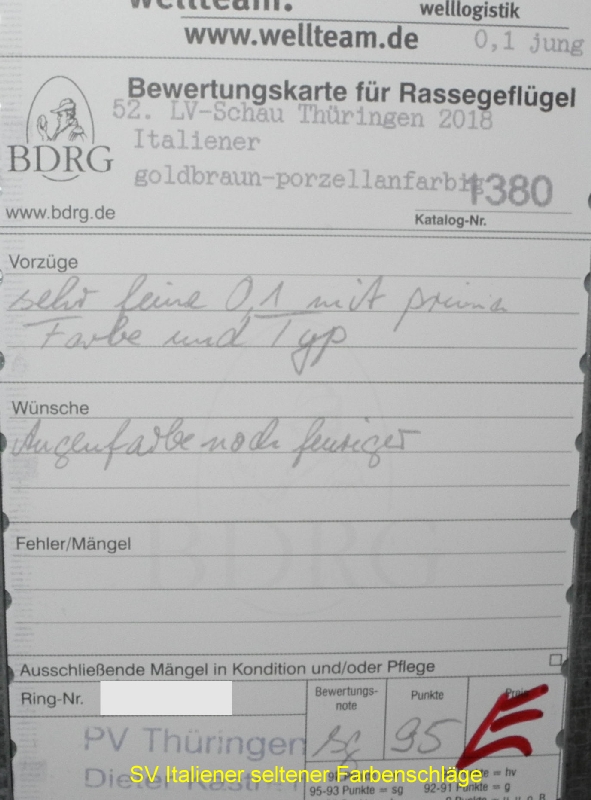 wellteam.
welllogistik
www.wellteam.de
0,1 jung
Bewertungskarte für Rassegeflügel
52. LV-Schau Thüringen 2018
Italiener
goldbraun-porzellanfarbig
1380
BDRG
www.bdrg.de
Katalog-Nr.
Vorzüge
sehr feine 0,1 mit prima
Farbe und Typ
Wünsche
Augenfarbe noch feuriger
BDRG
Fehler/Mängel
Ausschließende Mängel in Kondition und/oder Pflege
Ring-Nr.
Bewertungs-
note
Punkte
Preis
PV Thüringen
sg
95
Dieter
SV Italiener seltener Farbenschläge
= hv
95-93 Punkte = sg
92-91 Punkte = g